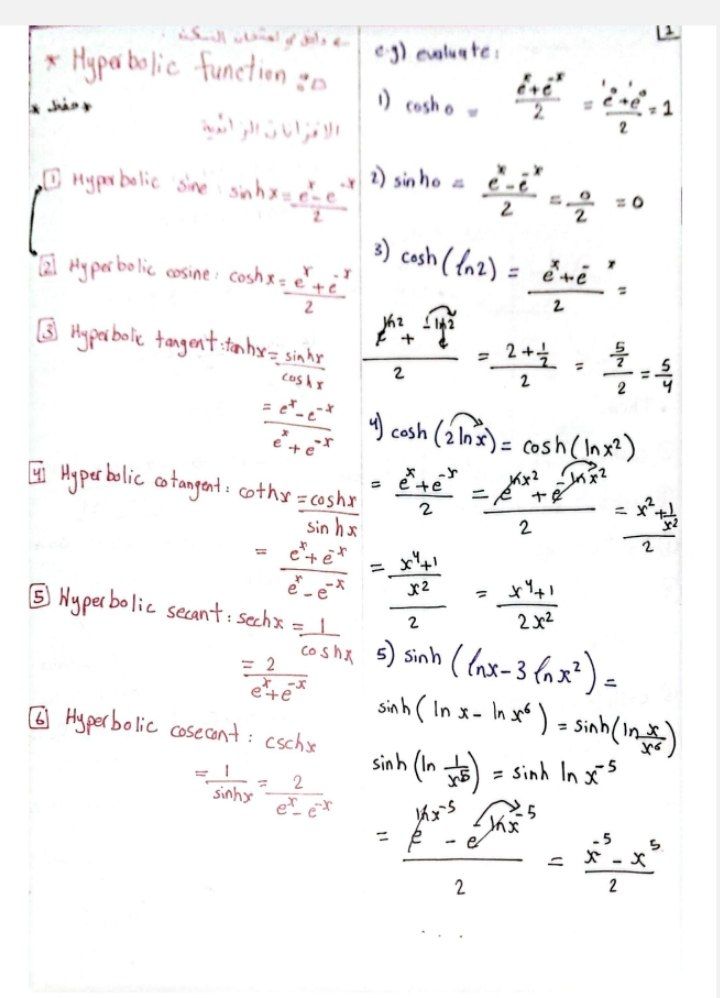 * Hyperbolic function :-
* حفظ *
الاقترانات الزائدية
[1] Hyperbolic sine : sinhx = (e^x - e^-x)/2
[2] Hyperbolic cosine : coshx = (e^x + e^-x)/2
[3] Hyperbolic tangent : tanhx = sinhx/coshx
= (e^x - e^-x)/(e^x + e^-x)
[4] Hyperbolic cotangent : cothx = coshx/sinhx
= (e^x + e^-x)/(e^x - e^-x)
[5] Hyperbolic secant : sechx = 1/coshx
= 2/(e^x + e^-x)
[6] Hyperbolic cosecant : cschx
= 1/sinhx = 2/(e^x - e^-x)
1
e.g) evaluate :
1) cosh0 = (e^x + e^-x)/2 = (e^0 + e^0)/2 = 1
2) sinh0 = (e^x - e^-x)/2 = 0/2 = 0
3) cosh(ln2) = (e^x + e^-x)/2 =
(e^ln2 + e^-ln2)/2 = (2 + 1/2)/2 = (5/2)/2 = 5/4
4) cosh(2lnx) = cosh(lnx^2)
= (e^x + e^-x)/2 = (e^lnx^2 + e^-lnx^2)/2 = (x^2 + 1/x^2)/2
= ((x^4+1)/x^2)/2 = (x^4+1)/2x^2
5) sinh(lnx - 3lnx^2) =
sinh(ln x - ln x^6) = sinh(ln x/x^6)
sinh(ln 1/x^5) = sinh ln x^-5
= (e^lnx^-5 - e^-lnx^-5)/2 = (x^-5 - x^5)/2
. . .